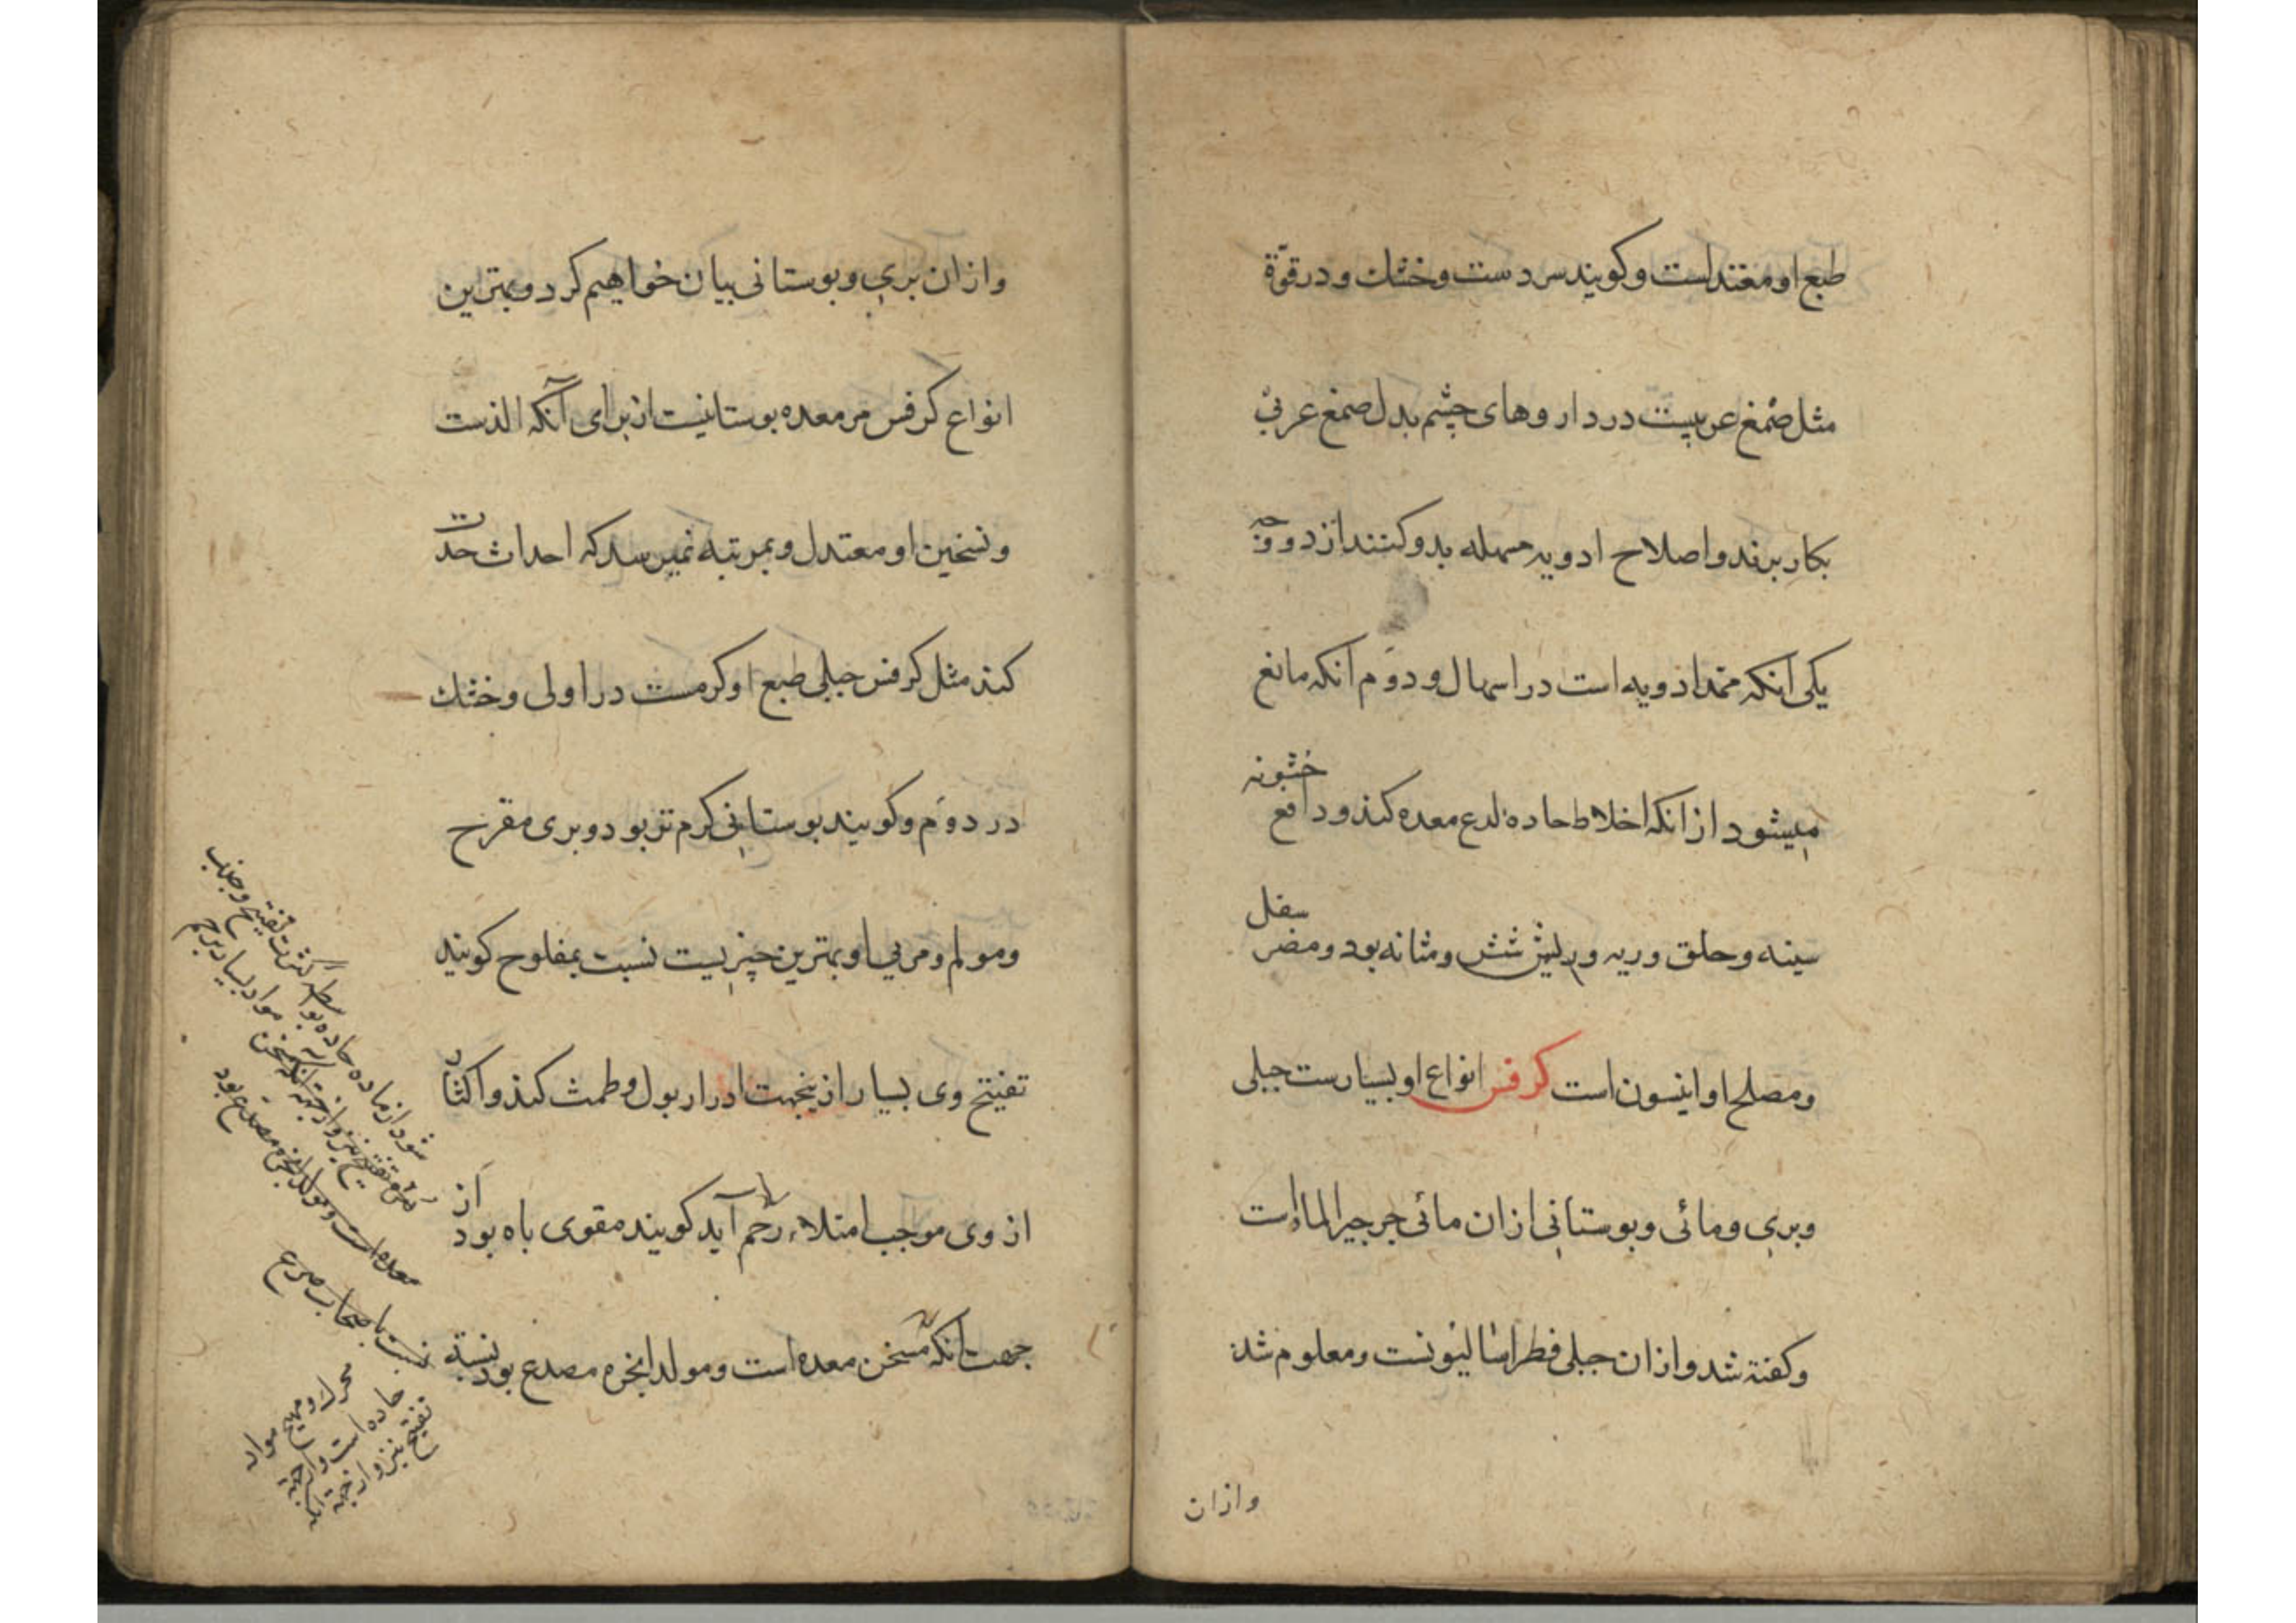 طبع او معتدلست و کویند سردست و خشك و در قوّة
مثل صمغ عربیست در داروهای چشم بدل صمغ عربی
بکار برند و اصلاح ادویه مسهله بدو کنند از دو وجه
یکی انکه ممد ادویه است در اسهال و دوم انکه مانع
میشود از انکه اخلاط حاده لدع معده کند و دافع خشونه
سینه و حلق و ریه و ریش شش و مثانه بود و مضر سفل
و مصلح او انیسون است کرفس انواع او بسیارست جبلی
و بری و مائی و بوستانی ازان مائی جرجیر الماء است
و کفته شد و ازان جبلی فطراسالیونست و معلوم شد
وازان
وازان بری و بوستانی بیان خواهیم کرد و بهترین
انواع کرفس مر معده بوستانیست از برای آنکه الذست
و تسخین او معتدل و بمرتبه نمیرسد که احداث حدت
کند مثل کرفس جبلی طبع او کرمست در اولی و خشك
در دوم و کویند بوستانی کرم تر بود و بری مقرح
و مولم و مربی او بهترین چیزیست نسبت بمفلوج کویند
تفتیح وی بسیار ازینجهت ادرار بول و طمث کند و اکثار
از وی موجب امتلاء رحم آید کویند مقوی باه بود از
جهت انکه مسخن معده است و مولد ابخره مصدع بود نسبة
شود از ماده حاده بواسطه کثرت تفتیح و جذب
مواد بسیار برحم
معده است و مولد ابخره مصدع بود
نسبت باصحاب صرع
محرك و مهیج مواد
حاده است و از جهة
تفتیح نیز و از جهة